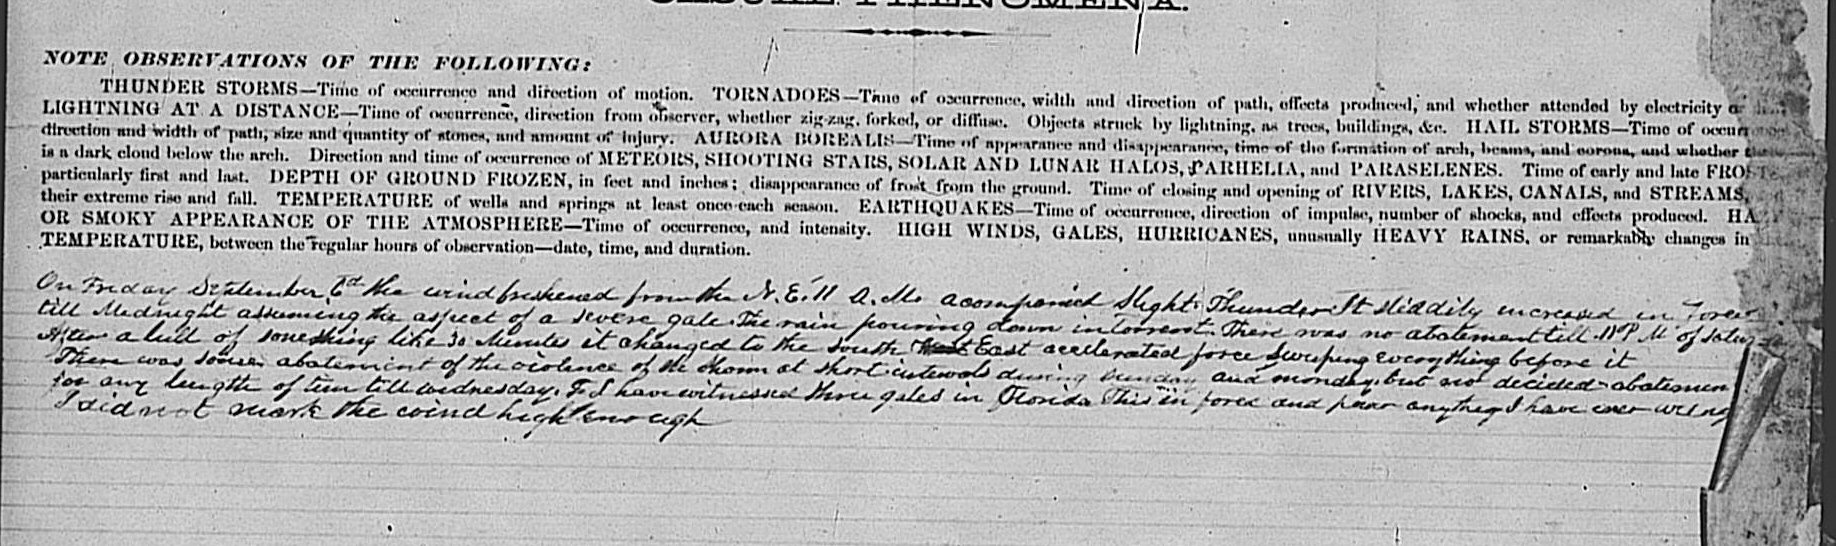 NOTE OBSERVATIONS OF THE FOLLOWING:
THUNDER STORMS—Time of occurrence and direction of motion. TORNADOES—Time of occurrence, width and direction of path, effects produced, and whether attended by electricity or
LIGHTNING AT A DISTANCE—Time of occurrence, direction from observer, whether zig-zag, forked, or diffuse. Objects struck by lightning, as trees, buildings, &c. HAIL STORMS—Time of occurrence
direction and width of path, size and quantity of stones, and amount of injury. AURORA BOREALIS—Time of appearance and disappearance, time of the formation of arch, beams, and corona, and whether there
is a dark cloud below the arch. Direction and time of occurrence of METEORS, SHOOTING STARS, SOLAR AND LUNAR HALOS, PARHELIA, and PARASELENES. Time of early and late FROSTS
particularly first and last. DEPTH OF GROUND FROZEN, in feet and inches; disappearance of frost from the ground. Time of closing and opening of RIVERS, LAKES, CANALS, and STREAMS,
their extreme rise and fall. TEMPERATURE of wells and springs at least once each season. EARTHQUAKES—Time of occurrence, direction of impulse, number of shocks, and effects produced. HA
OR SMOKY APPEARANCE OF THE ATMOSPHERE—Time of occurrence, and intensity. HIGH WINDS, GALES, HURRICANES, unusually HEAVY RAINS, or remarkably changes in
TEMPERATURE, between the regular hours of observation—date, time, and duration.
On Friday September 6d the wind freshened from the N.E. 11 A.M. acompanied Slight Thunder It stiddily increased in Force
till Midnight assuming the aspect of a severe gale. The rain pouring down in torrent. There was no abatement till 11 P M of Satu
After a lull of something like 30 Minutes it changed to the south East accllerated force Sweeping everything before it
There was some abatement of the violence of the storm at short intervals during Sunday and monday, but no decided abatemen
for any length of time till wednesday. I have witnessed three gales in Florida This in force and anything I have ever
I did not mark the wind high enough